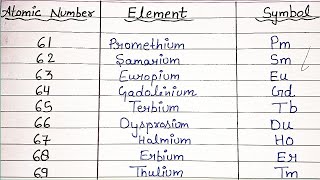 Atomic Number Element Symbol
61 Promethium Pm
62 Samarium Sm
63 Europium Eu
64 Gadolinium Gd
65 Terbium Tb
66 Dysprosium Du
67 Halmium Ho
68 Erbium Er
69 Thulium Tm